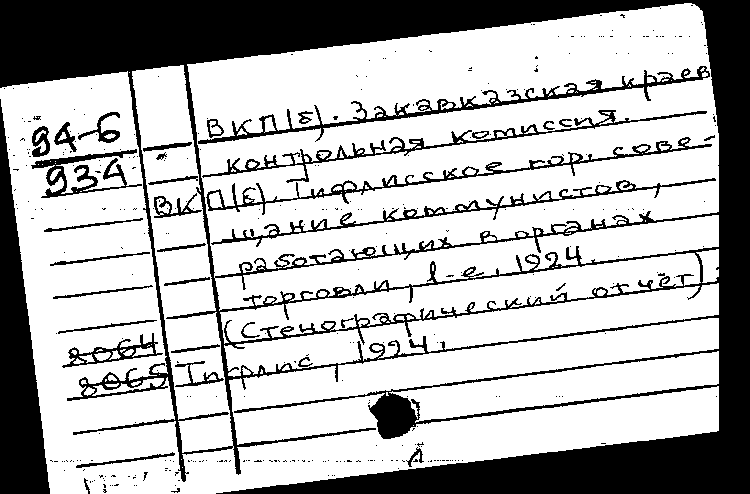 94-Б
934
ВКП(б). Закавказская краев
контрольная комиссия.
ВКП(б). Тифлисское гор. сове-
щание коммунистов,
работающих в органах
торговли, 1-е. 1924.
(Стенографический отчёт).
8064
8065 Тифлис, 1924.